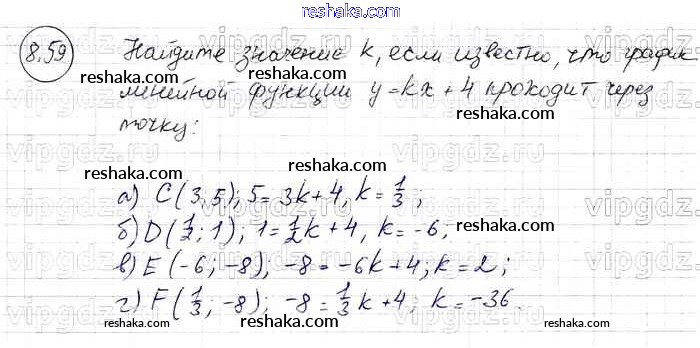 reshaka.com
8.59 Найдите значение k, если известно, что график
reshaka.com reshaka.com
линейной функции y=kx+4 проходит через
точку:
reshaka.com
vipgdz
а) C(3;5); 5=3k+4, k=1/3;
reshaka.com
б) D(1/2; 1); 1=1/2k+4, k=-6;
в) E(-6; -8); -8=-6k+4; k=2;
г) F(1/3; -8); -8=1/3k+4; k=-36.
reshaka.com reshaka.com